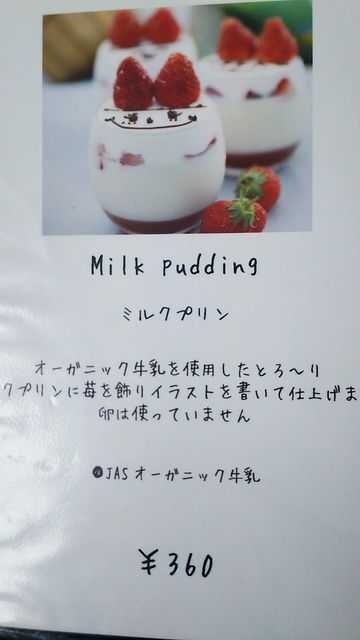 Milk pudding
ミルクプリン
オーガニック牛乳を使用したとろ〜り
クプリンに苺を飾りイラストを書いて仕上げま
卵は使っていません
●JASオーガニック牛乳
¥360